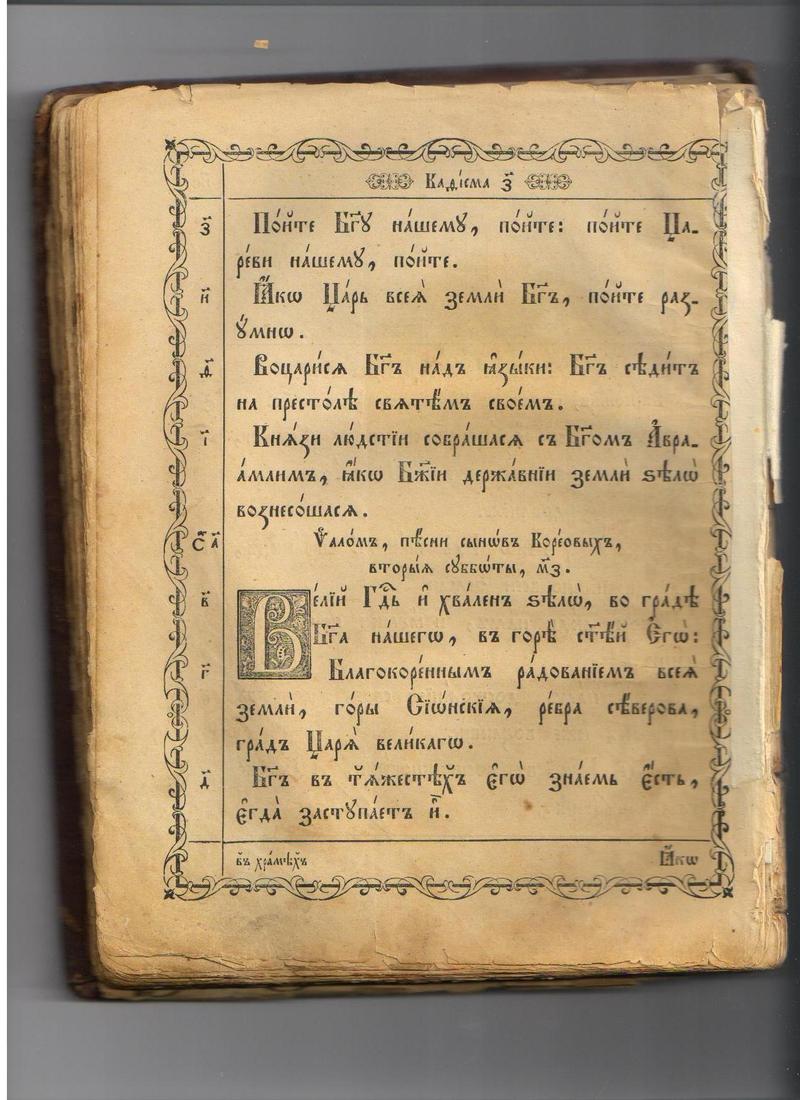 Каѳі́сма з҃
з҃ По́йте Бг҃ꙋ на́шемꙋ, по́йте: по́йте Ца-
ре́ви на́шемꙋ, по́йте.
и҃ Ꙗ҆́кѡ Ца́рь всеѧ̀ землѝ Бг҃ъ, по́йте раз-
ꙋ́мнѡ.
ѳ҃ Воцари́сѧ Бг҃ъ над̾ ꙗ҆зы́ки: Бг҃ъ сѣди́тъ
на престо́лѣ свѧтѣ́мъ свое́мъ.
і҃ Кнѧ́зи лю́дстїи собра́шасѧ съ Бг҃омъ А҆вра-
а́млимъ, ꙗ҆́кѡ Бж҃їи держа́внїи землѝ ѕѣлѡ̀
вознесо́шасѧ.
Ѱало́мъ, пѣ́сни сынѡ́въ Коре́овыхъ,
вторы́ѧ сꙋббѡ́ты, м҃з.
в҃ Ве́лій Гдⷭ҇ь и҆ хва́ленъ ѕѣлѡ̀, во гра́дѣ
Бг҃а на́шегѡ, въ горѣ̀ ст҃ѣ́й є҆гѡ̀:
г҃ Благокоре́ннымъ ра́дованїемъ всеѧ̀
землѝ, го́ры Сїѡ́нскїѧ, ре́бра сѣ́верова,
гра́дъ Царѧ̀ вели́кагѡ.
д҃ Бг҃ъ въ тѧ́жестѣхъ є҆гѡ̀ зна́емь є҆́сть,
є҆гда̀ застꙋпа́етъ и҆̀.
въ хра́мѣхъ Ꙗ҆́кѡ